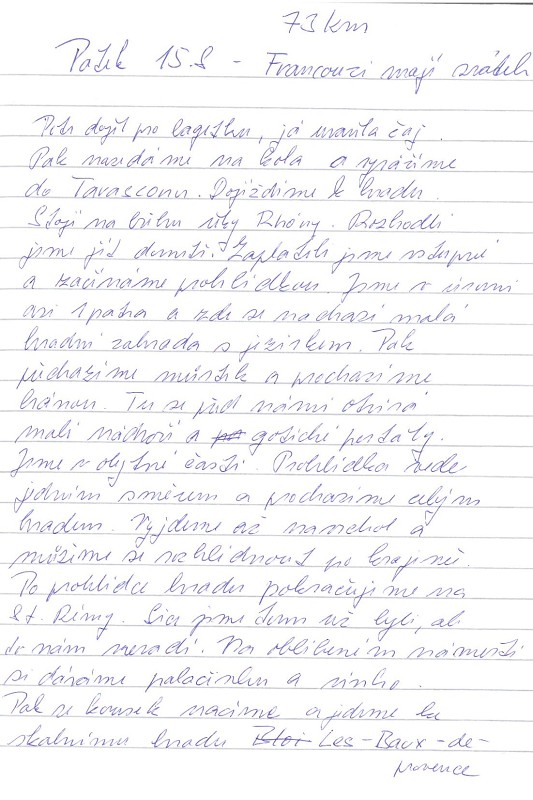 73 km
Pátek 15.8 - Francouzi mají svátek
Petr dojil pro bagetku, já uvařila čaj.
Pak nasedáme na kola a vyrážíme
do Tarasconu. Dojíždíme k hradu.
Stojí na břehu řeky Rhóny. Rozhodli
jsme jít dovnitř. Zaplatili jsme vstupné
a začínáme prohlídkou. Jsme v úrovni
asi 1 patra a zde se nachází malá
hradní zahrada s jezírkem. Pak
přecházíme můstek a procházíme
bránou. Tu se před námi otvírá
malé nádvoří a gotické portály.
Jsme v obytné části. Prohlídka vede
jedním směrem a procházíme celým
hradem. Vyjdeme až na vrchol a
můžeme se rozhlédnout po krajině.
Po prohlídce hradu pokračujeme na
St. Rémy. Sice jsme tam už byli, ale
to nám nevadí. Na oblíbeném náměstí
si dáváme palačinku a vínko.
Pak se kousek vracíme a jedeme ke
skalnímu hradu Bloi Les-Baux-de-
provence